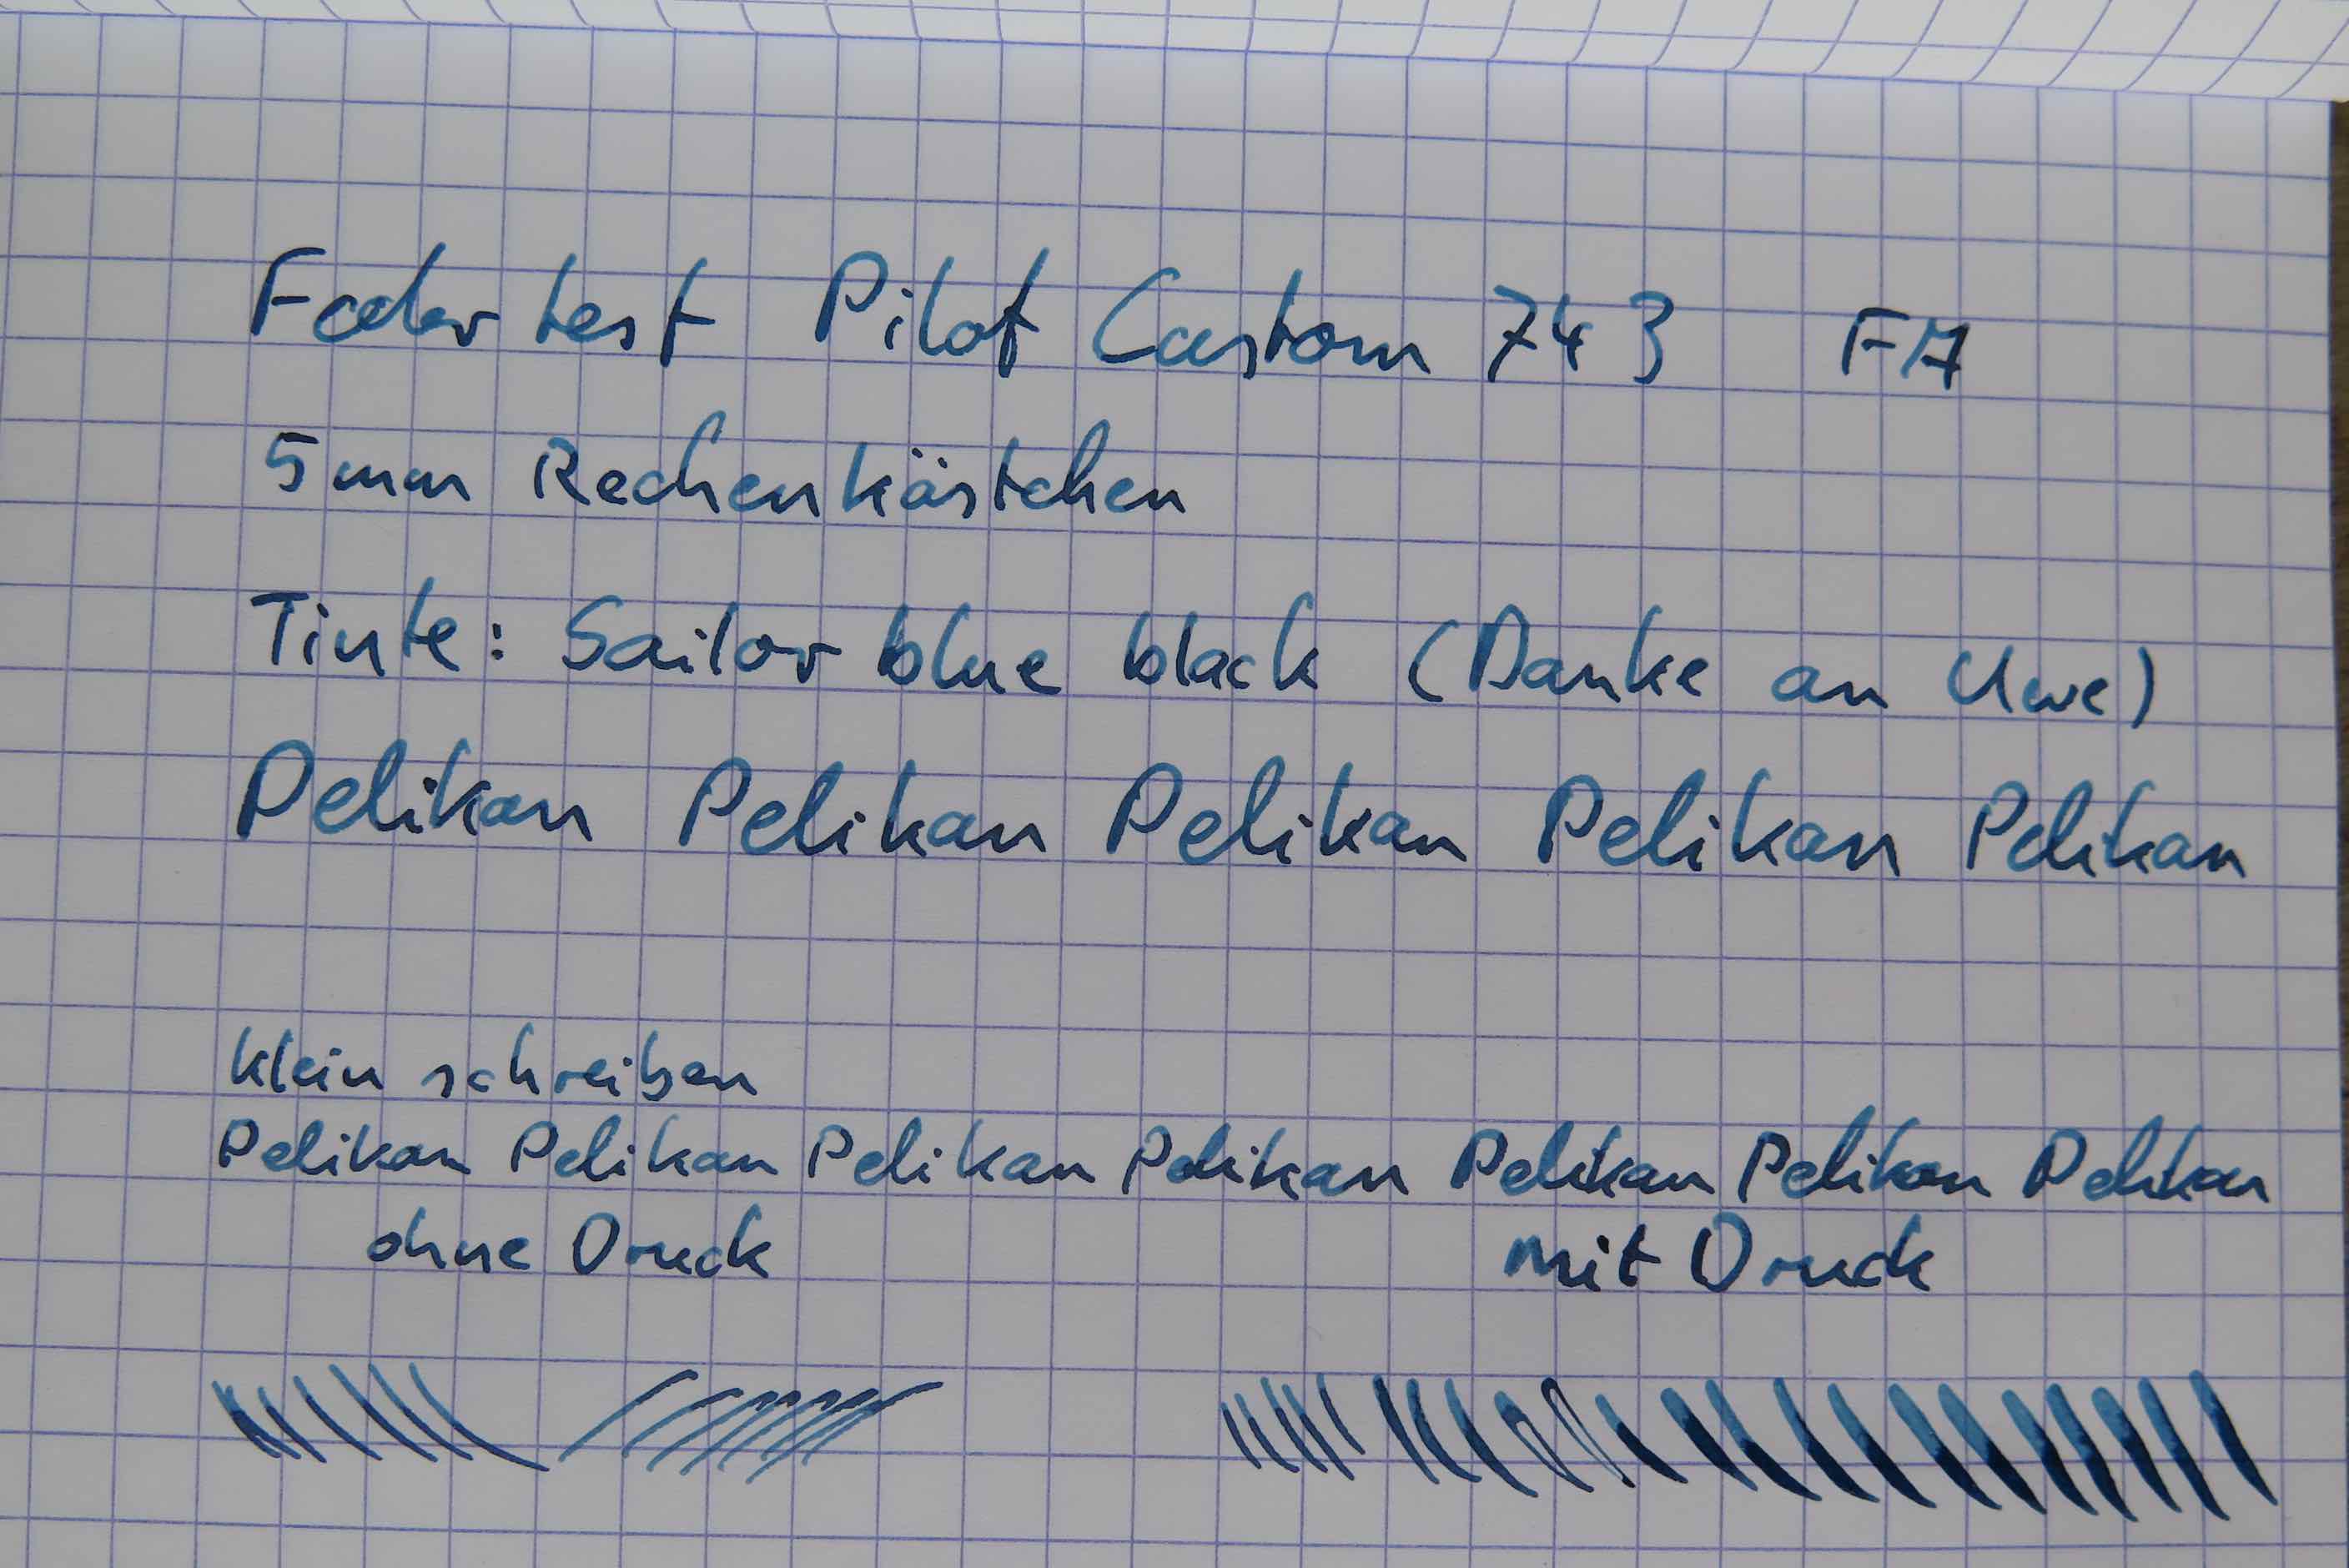 Federtest Pilot Custom 743 FA
5mm Rechenkästchen
Tinte: Sailor blue black (Danke an Uwe)
Pelikan Pelikan Pelikan Pelikan Pelikan
klein schreiben
Pelikan Pelikan Pelikan Pelikan Pelikan Pelikan Pelikan
ohne Druck mit Druck